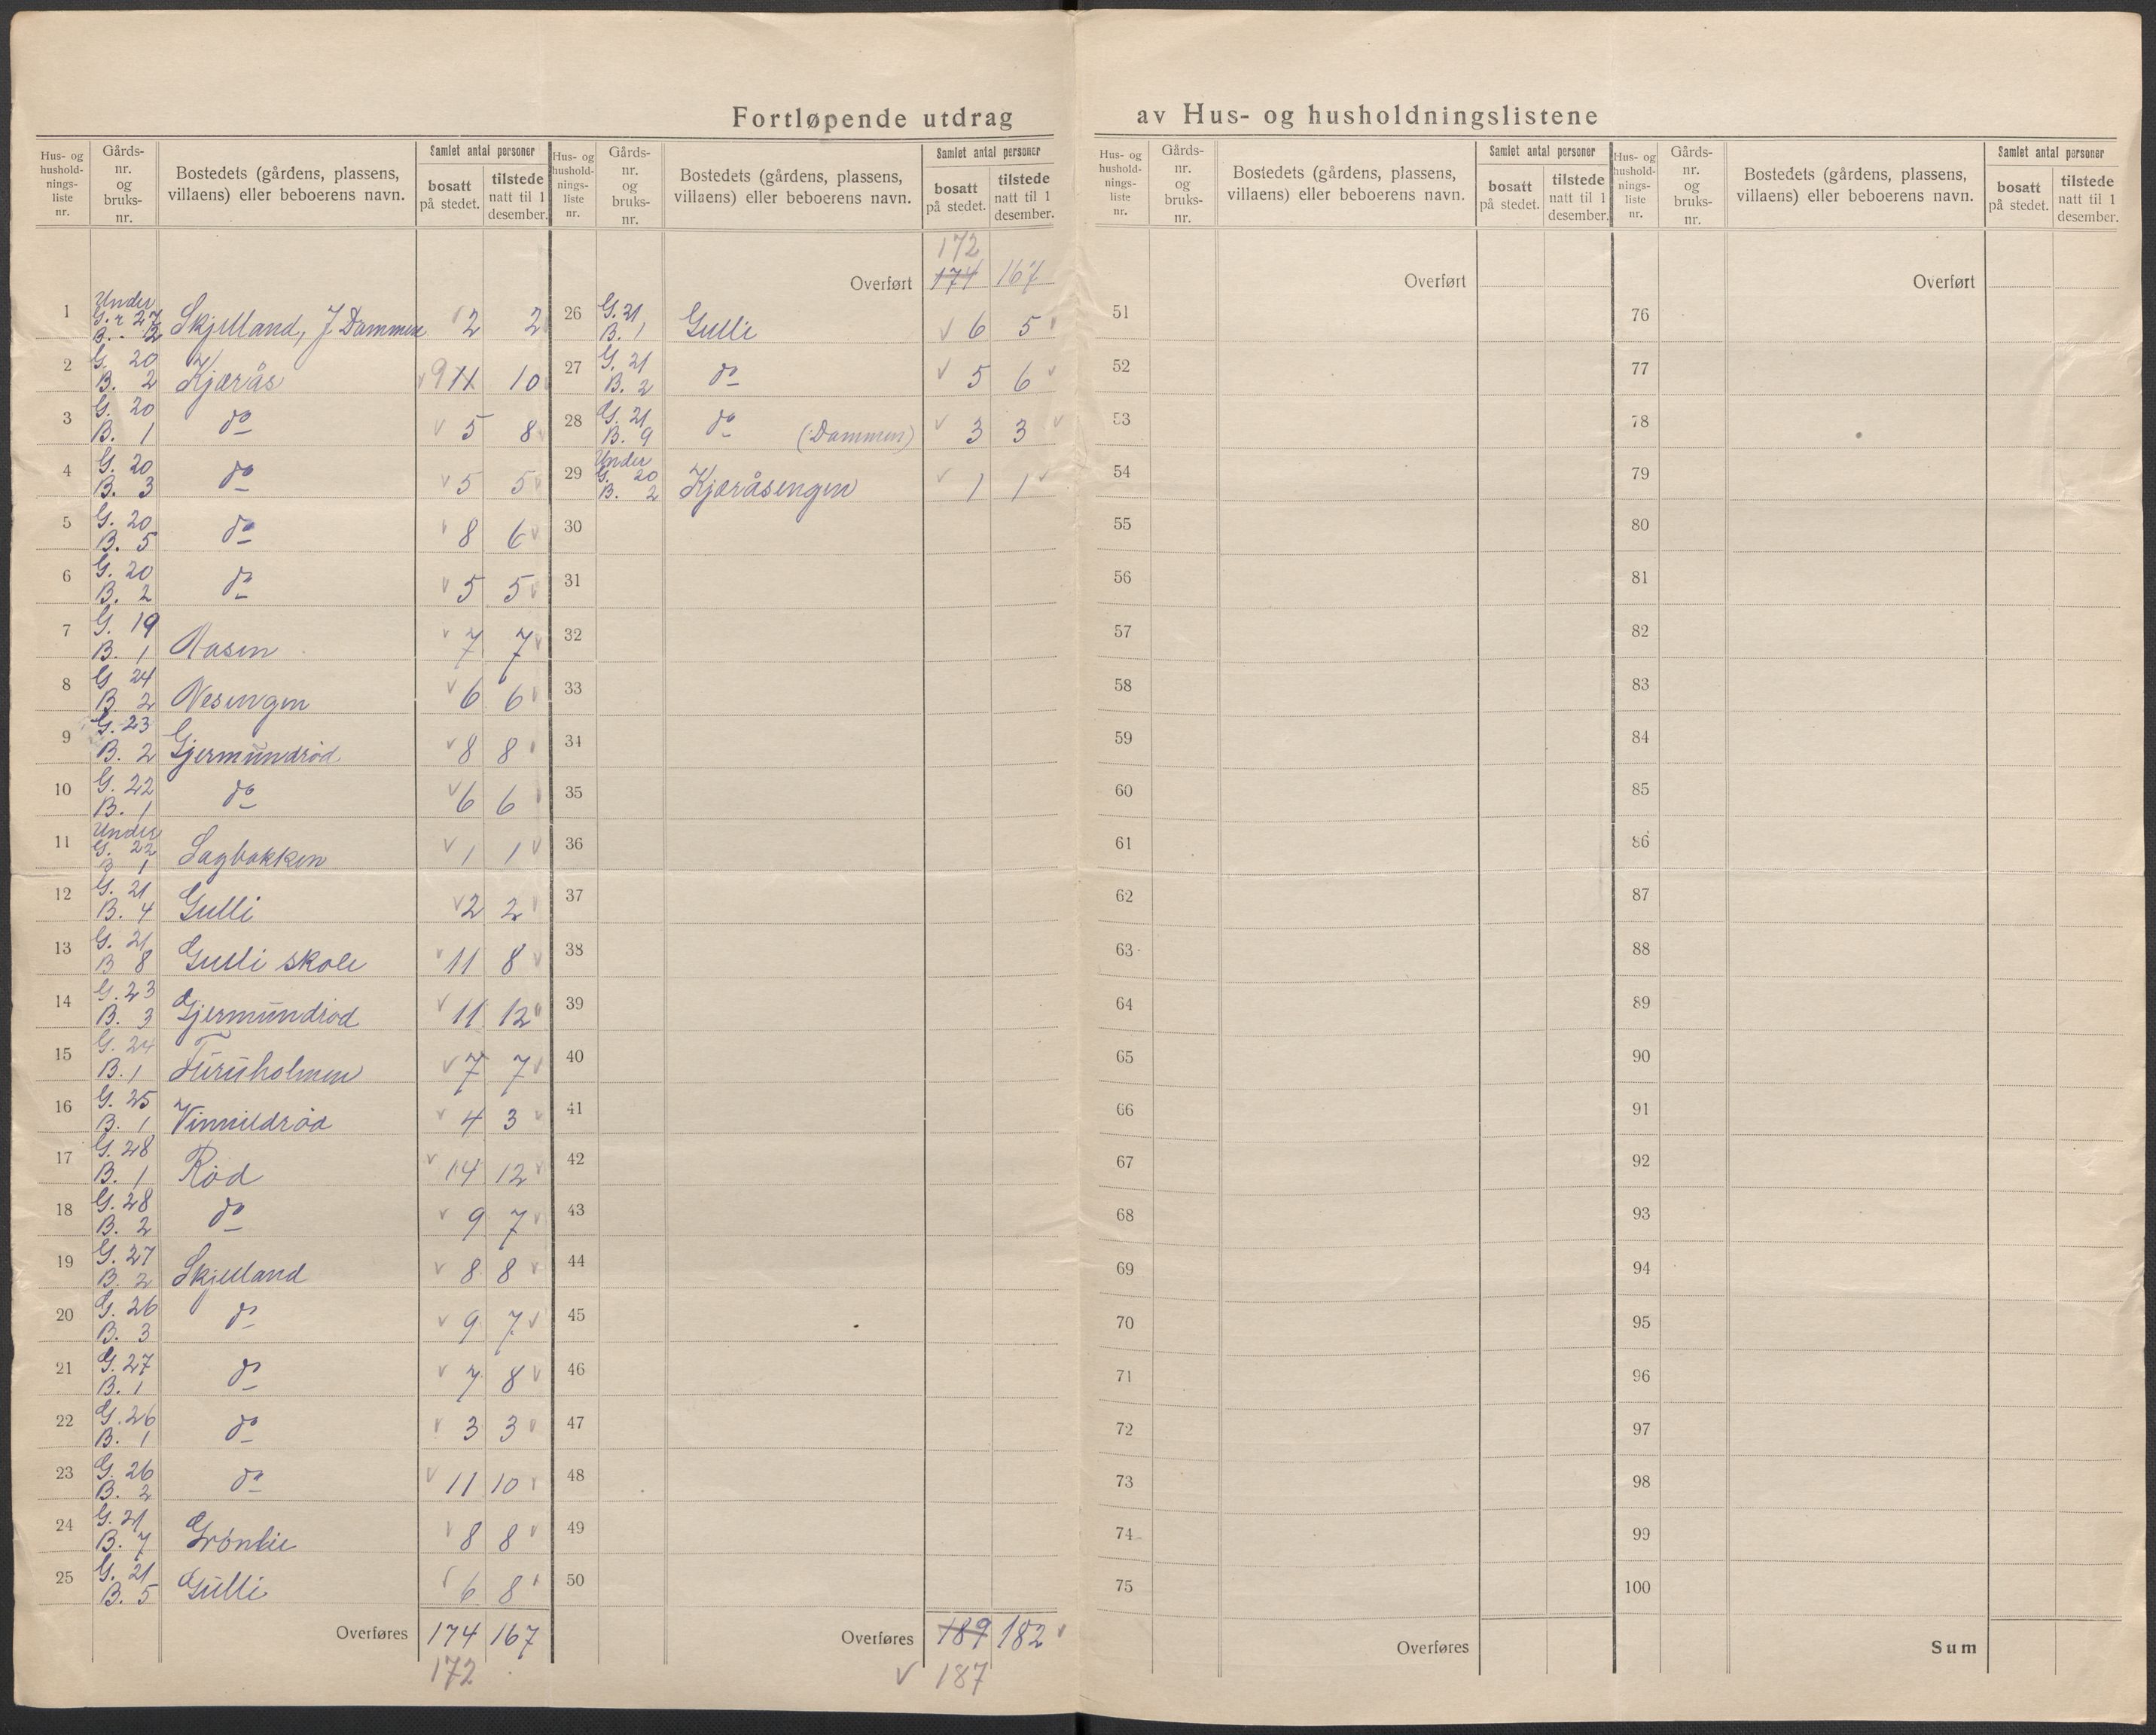 Fortløpende utdrag av Hus- og husholdningslistene
Hus- og hushold- nings- liste nr. | Gårds- nr. og bruks- nr. | Bostedets (gårdens, plassens, villaens) eller beboerens navn. | Samlet antal personer | bosatt på stedet. | tilstede natt til 1 desember.
Hus- og hushold- nings- liste nr. | Gårds- nr. og bruks- nr. | Bostedets (gårdens, plassens, villaens) eller beboerens navn. | Samlet antal personer | bosatt på stedet. | tilstede natt til 1 desember.
Hus- og hushold- nings- liste nr. | Gårds- nr. og bruks- nr. | Bostedets (gårdens, plassens, villaens) eller beboerens navn. | Samlet antal personer | bosatt på stedet. | tilstede natt til 1 desember.
Hus- og hushold- nings- liste nr. | Gårds- nr. og bruks- nr. | Bostedets (gårdens, plassens, villaens) eller beboerens navn. | Samlet antal personer | bosatt på stedet. | tilstede natt til 1 desember.
1 Under G. 27 B. 2 Skjelland, Dammen 2 2
2 G. 20 B. 2 Kjærås 9 11 10
3 G. 20 B. 1 do 5 8
4 G. 20 B. 3 do 5 5
5 G. 20 B. 5 do 8 6
6 G. 20 B. 2 do 5 5
7 G. 19 B. 1 Aasen 7 7
8 G 24 B. 2 Nesengen 6 6
9 G. 23 B. 2 Gjermundrød 8 8
10 G. 22 B. 1 do 6 6
11 Under G. 22 B 1 Sagbakken 1 1
12 G. 21 B. 4 Gulli 2 2
13 G. 21 B 8 Gulli skole 11 8
14 G. 23 B. 3 Gjermundrød 11 12
15 G. 24 B. 1 Furuholmen 7 7
16 G. 25 B. 1 Vinnildrød 4 3
17 G. 28 B. 1 Rød 14 12
18 G. 28 B. 2 do 9 7
19 G. 27 B. 2 Skjelland 8 8
20 G. 26 B. 3 do 9 7
21 G. 27 B. 1 do 7 8
22 G. 26 B. 1 do 3 3
23 G. 26 B. 2 do 11 10
24 G. 21 B. 7 Grønlie 8 8
25 G. 21 B. 5 Gulli 6 8
Overføres 174 167
172
172
Overført 174 167
26 G. 21 B. 1 Gulli 6 5
27 G. 21 B. 2 do 5 6
28 G. 21 B. 9 do (Dammen) 3 3
29 Under G. 20 B. 2 Kjæråsengen 1 1
30
31
32
33
34
35
36
37
38
39
40
41
42
43
44
45
46
47
48
49
50
Overføres 189 182
187
Overført
51
52
53
54
55
56
57
58
59
60
61
62
63
64
65
66
67
68
69
70
71
72
73
74
75
Overføres
Overført
76
77
78
79
80
81
82
83
84
85
86
87
88
89
90
91
92
93
94
95
96
97
98
99
100
Sum